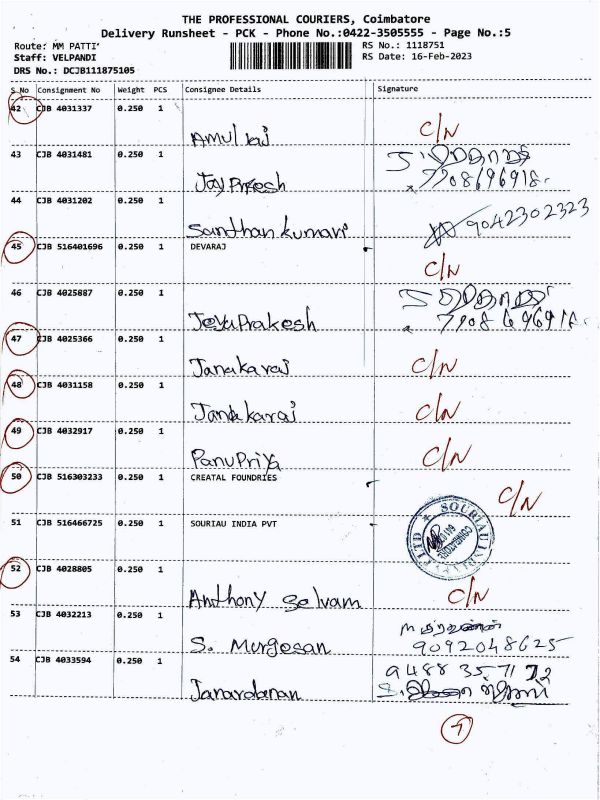 THE PROFESSIONAL COURIERS, Coimbatore
Delivery Runsheet - PCK - Phone No.:0422-3505555 - Page No.:5
Route: MM PATTI
RS No.: 1118751
Staff: VELPANDI
RS Date: 16-Feb-2023
DRS No.: DCJB111875105
S.No Consignment No Weight PCS Consignee Details Signature
42 CJB 4031337 0.250 1
Amul C/N
43 CJB 4031481 0.250 1
Jay Prkesh 7708696918
44 CJB 4031202 0.250 1
Santhan kumari 9042302323
45 CJB 516401696 0.250 1 DEVARAJ
C/N
46 CJB 4025887 0.250 1
JeyaPrakesh 7708696918
47 CJB 4025366 0.250 1
Janakaraj C/N
48 CJB 4031158 0.250 1
Janakaraj C/N
49 CJB 4032917 0.250 1
PanuPriya C/N
50 CJB 516303233 0.250 1 CREATAL FOUNDRIES
C/N
51 CJB 516466725 0.250 1 SOURIAU INDIA PVT
SOURIAU INDIA PVT LTD
52 CJB 4028805 0.250 1
Anthony Selvam C/N
53 CJB 4032213 0.250 1
S. Murgesan 9092048625
54 CJB 4033594 0.250 1
Janardanan 9488357172